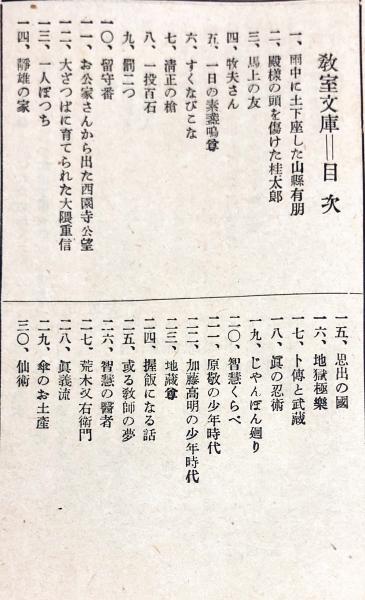 教室文庫=目次
一、雨中に土下座した山縣有朋
二、殿樣の頭を傷けた桂太郎
三、馬上の友
四、牧夫さん
五、一日の素盞嗚尊
六、すくなびこな
七、淸正の槍
八、一投百石
九、罰二つ
一〇、留守番
一一、お公家さんから出た西園寺公望
一二、大ざつぱに育てられた大隈重信
一三、一人ぼつち
一四、靜雄の家
一五、思出の國
一六、地獄極樂
一七、卜傳と武藏
一八、眞の忍術
一九、じやんぽん廻り
二〇、智慧くらべ
二一、原敬の少年時代
二二、加藤高明の少年時代
二三、地藏尊
二四、握飯になる話
二五、或る敎師の夢
二六、智慧の醫者
二七、荒木又右衞門
二八、眞義流
二九、傘のお土產
三〇、仙術